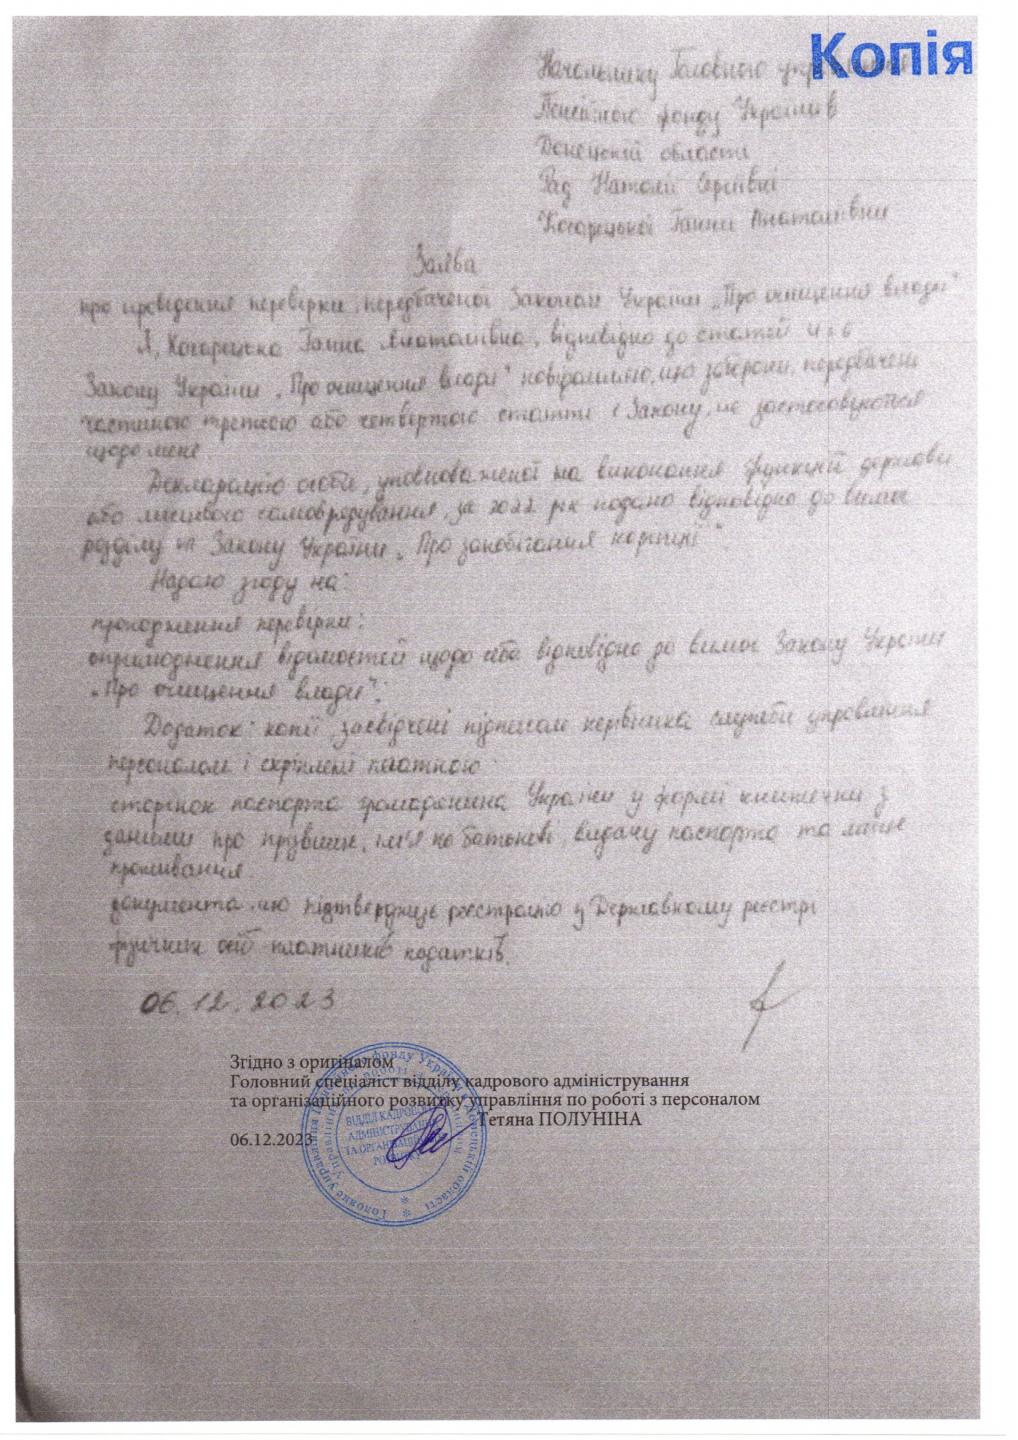 Копія
Начальнику Головного управління
Пенсійного фонду України в
Донецькій області
Рад Наталії Сергіївні
Ганни Анатоліївни
Заява
про проведення перевірки, передбаченої Законом України „Про очищення влади"
Я, Ганна Анатоліївна, відповідно до статей 4 і 6
Закону України „Про очищення влади" повідомляю, що заборони, передбачені
частиною третьою або четвертою статті 1 Закону, не застосовуються
щодо мене.
Декларацію особи, уповноваженої на виконання функцій держави
або місцевого самоврядування, за 2022 рік подано відповідно до вимог
розділу VII Закону України „Про запобігання корупції".
Надаю згоду на:
проходження перевірки;
оприлюднення відомостей щодо себе відповідно до вимог Закону України
„Про очищення влади".
Додаток: копії, засвідчені підписом керівника служби управління
персоналом і скріплені печаткою:
сторінок паспорта громадянина України у формі книжечки з
даними про прізвище, ім'я по батькові, видачу паспорта та місце
проживання.
документа що підтверджує реєстрацію у Державному реєстрі
фізичних осіб платників податків.
06.12.2023
Згідно з оригіналом
Головний спеціаліст відділу кадрового адміністрування
та організаційного розвитку управління по роботі з персоналом
Тетяна ПОЛУНІНА
06.12.2023
ВІДДІЛ КАДРОВОГО
АДМІНІСТРУВАННЯ
ТА ОРГАНІЗАЦІЙНОГО
РОЗВИТКУ
Головне управління Пенсійного фонду України в Донецькій області